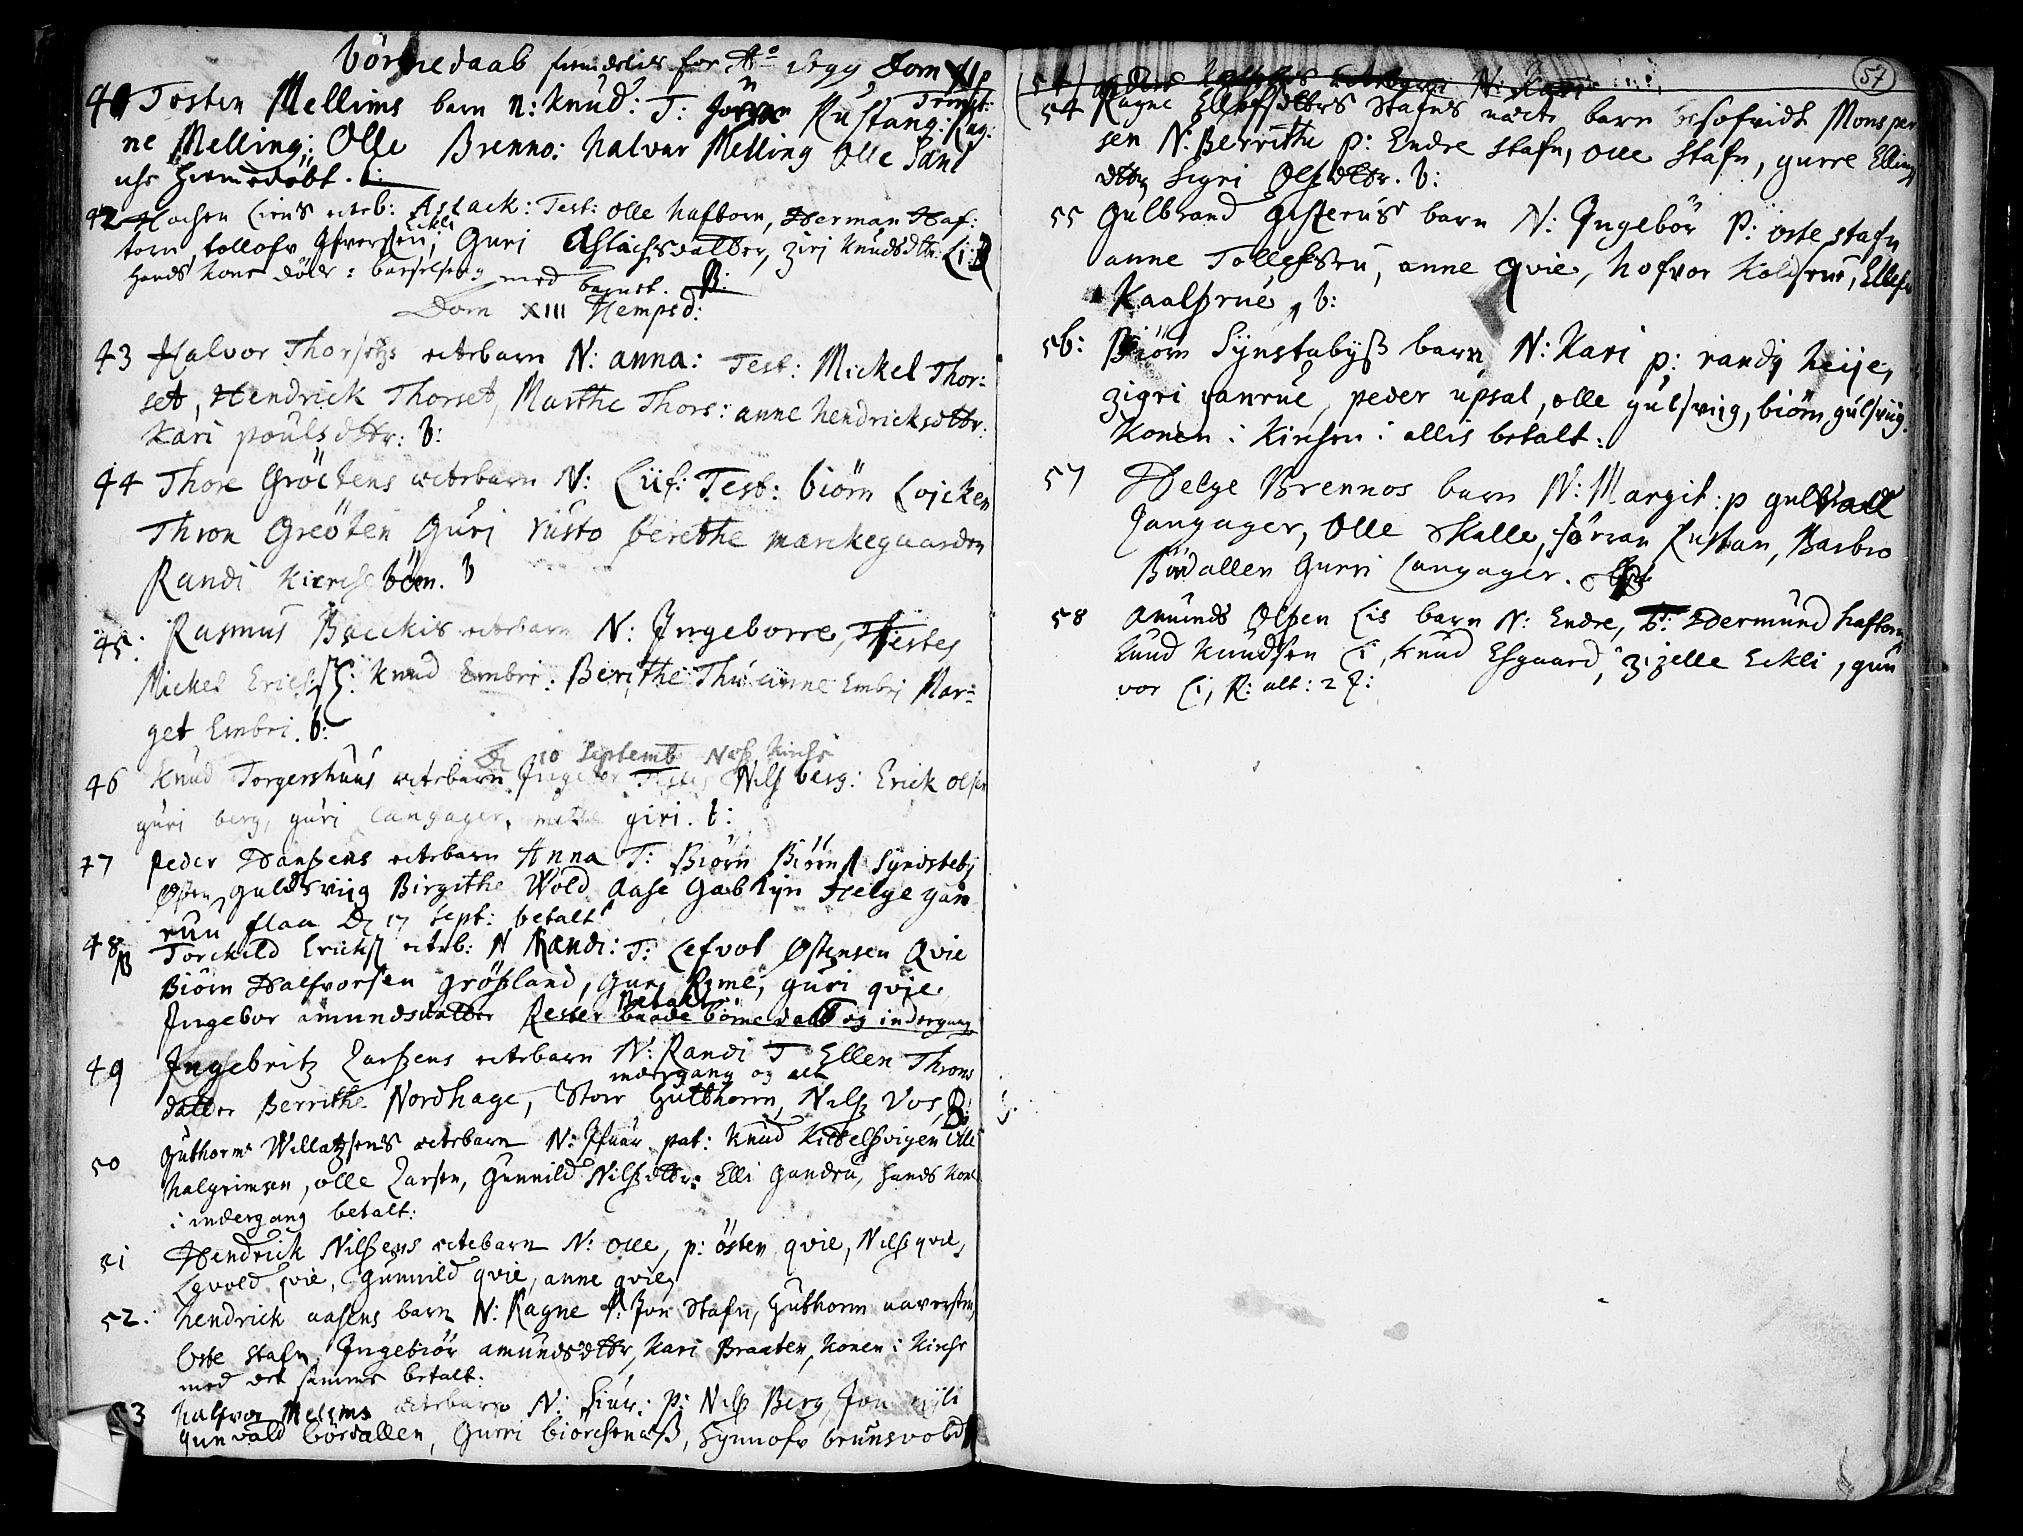 Börnedaab fremdelis for Ao 1699 Dom XIIp
Trinit:
40 Tosten Mellims barn n: Knud: T: Jörn Rustang: Rag:
ne Melling: Olle Brenno: Halvur Melling Olle Sand
uhr hiemedöbt. b:
42 Hachen Liens ecteb: Aslack: Test: Olle haftorn, Herman Haf:
torn tollofv Ifversen, Eckli Guri Aslachsdatter, Ziri Knudsdtr: Li: B
hands kone döde: barselseng med barnet. B:
Dom XIII Hempsd:
43 Halvor Thorsetz ectebarn N: anna: Test: Mickel Thor:
set, Hendrick Thorset, Marthe Thors: anne hendricksdttr:
Kari poulsdttr: b:
44 Thore Gröctens ectebarn N: Liif: Test: biörn Lojcken
Thron Greöten Guri rusto berethe marckegaarden
Randi Kiercheböen. b
45. Rasmus Bæckis ectebarn N: Ingeborre, Testes
Mickel Erichs: Knud Embri: Berithe Thu anne Embri Mar:
get Embri. b:
D 10 Septemb Næss Kirche
46 Knud Torgershuus ectebarn Ingebor Testes Nilss berg: Erick olsen
guri berg, guri Langager, mette giri. b:
47 Peder Hanssens ectebarn Anna T: Biörn Biörn Syndsteby
Østen guldsviig Birgithe Wold Aase Gabsyn Helge gan
ruu flaa D 17 Sept: betalt
48 Torckild Ericks ecteb: N Randi: T: Lefvol Østensen Qvie
Biörn Halfvorsen grösland, Guri Rime, guri qvie
Ingebor amundsdatter Rester baade börnedaab og indergang
Betalt
49 Ingebritz Larssens ectebarn N: Randi T Ellen Throns
indergang og alt
datter Berrithe Nordhage, Stoer Gutthorm, Nilss Vos, B:
50 Guthorms Willatzsens ectebarn N: Ifuar pat: Knud Kittelsvigen Olle
halgrimsen, olle Larsen, Gunnild Nilssdttr: Elli gandru, hands kone
i indergang betalt:
51 Hendrick Nilssens ectebarn N: Olle, p: östen qvie, Nilss qvie,
Levold qvie, Gunnild qvie, anne qvie,
52. hendrick aasens barn N: Ragne P: Jon Stafn, Guthorm aaversten,
Oste Stafn, Ingebiör amundsdttr, Kari Braaten, Konen i Kirche
med det samme betalt:
53 halfvor Mellms ectebarn N: Siur: P: Nilss Berg, Jon
gunvald bördallen, Gurri biörchenæss, Synnofv brunsvold

57
54 Ragne Ellefsdtters Stafns uæcte barn besofvidt Mons per
sen N: Berrithe p: Endre Stafn, Olle Stafn, gurre Elling
dtter Sigri Olsdttr. b:
55 Gulbrand gisterus barn N: Ingebör P: öste stafn
anne Tollefsru, anne qvie, hofvor Kolsrue, Ellefs
Kaalssrue, b:
56: Biörn Synstabyss barn N: Kari p: randy heije,
zigri ganrue, peder upsal, olle gulsviig, biörn gulsviig.
Konen i Kirchen: allis betalt:
57 Helge Brennos barn N: Margit: p gulvall
Langager, Olle Skalle, Jörran Rustan, Barbro
Bördallen Gurri Langager.
58 Amunds Olssen Lis barn N: Endre, P: Hermund haftorn
Knud Knudsen Li, Knud Essgaard, zizelle Eckli, gun
vor Li, R: alt: 2